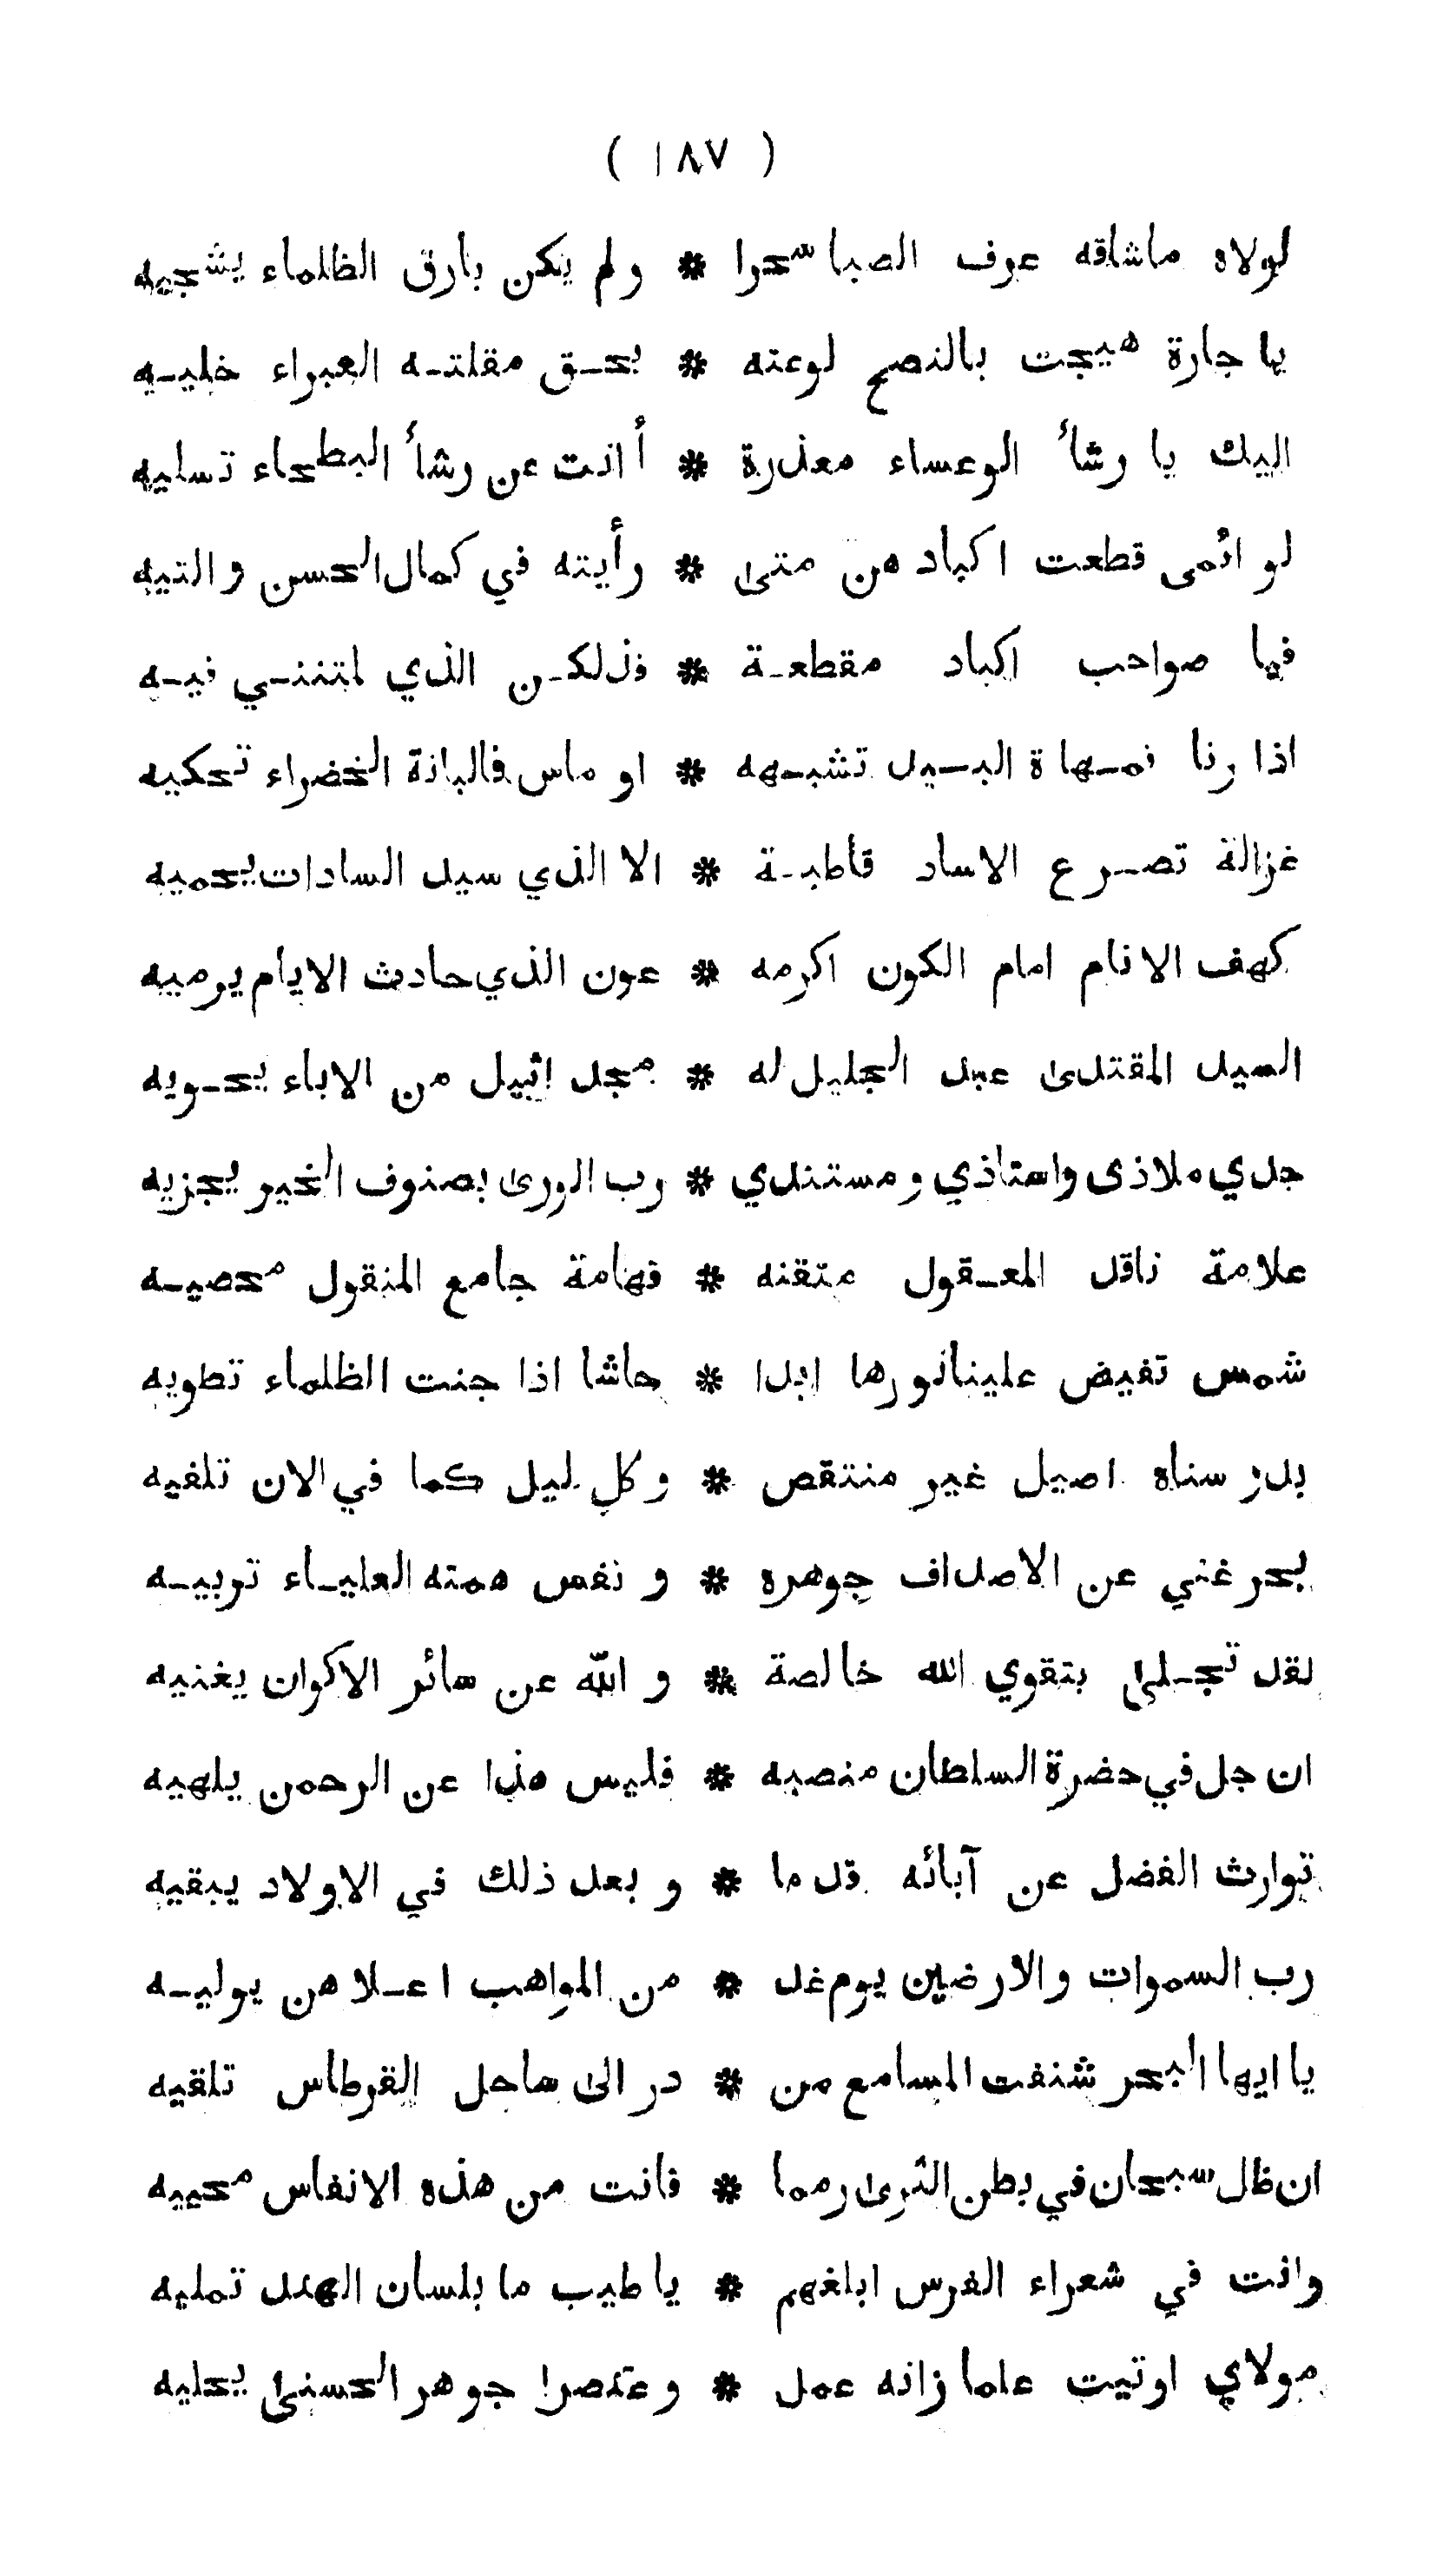 ( ١٨٧ )
لولاه ماشاقه عرف الصبا سحرا * ولم يكن بارق الظلماء يشجيه
يا جارة هيجت بالنصح لوعته * بحق مقلته العبراء خليه
اليك يا رشأ الوعساء معذرة * أ انت عن رشأ البطحاء تسليه
لوائمى قطعت اكبادهن متى * رأيته في كمال الحسن والتيه
فيا صواحب اكباد مقطعة * فذلكن الذي لمتننى فيه
اذا رنا فمهاة البيد تشبهه * او ماس فالبانة الخضراء تحكيه
غزالة تصرع الاساد قاطبة * الا الذي سيد السادات يحميه
كهف الانام امام الكون اكرمه * عون الذي حادث الايام يرميه
السيد المقتدى عبد الجليل له * مجد اثيل من الاباء يحويه
جدي ملاذى واستاذي ومستندي * رب الورى بصنوف الخير يجزيه
علامة ناقد المعقول متقنه * فهامة جامع المنقول محصيه
شمس تفيض علينا نورها ابدا * حاشا اذا جنت الظلماء تطويه
بدر سناه اصيل غير منتقص * وكل ليل كما في الان تلفيه
بحر غني عن الاصداف جوهره * و نفس همته العلياء تربيه
لقد تجلى بتقوي الله خالصة * و الله عن سائر الاكوان يغنيه
ان جل في حضرة السلطان منصبه * فليس هذا عن الرحمن يلهيه
توارث الفضل عن آبائه قدما * و بعد ذلك في الاولاد يبقيه
رب السموات والارضين يوم غد * من المواهب اعلاهن يوليه
يا ايها البحر شنفت المسامع من * در الى ساحل القرطاس تلقيه
ان ظل سبحان في بطن الثرى رمما * فانت من هذه الانفاس محييه
وانت في شعراء الفرس ابلغهم * يا طيب ما بلسان الهند تمليه
مولاي اوتيت علما زانه عمل * وعنصرا جوهر الحسنى يحليه